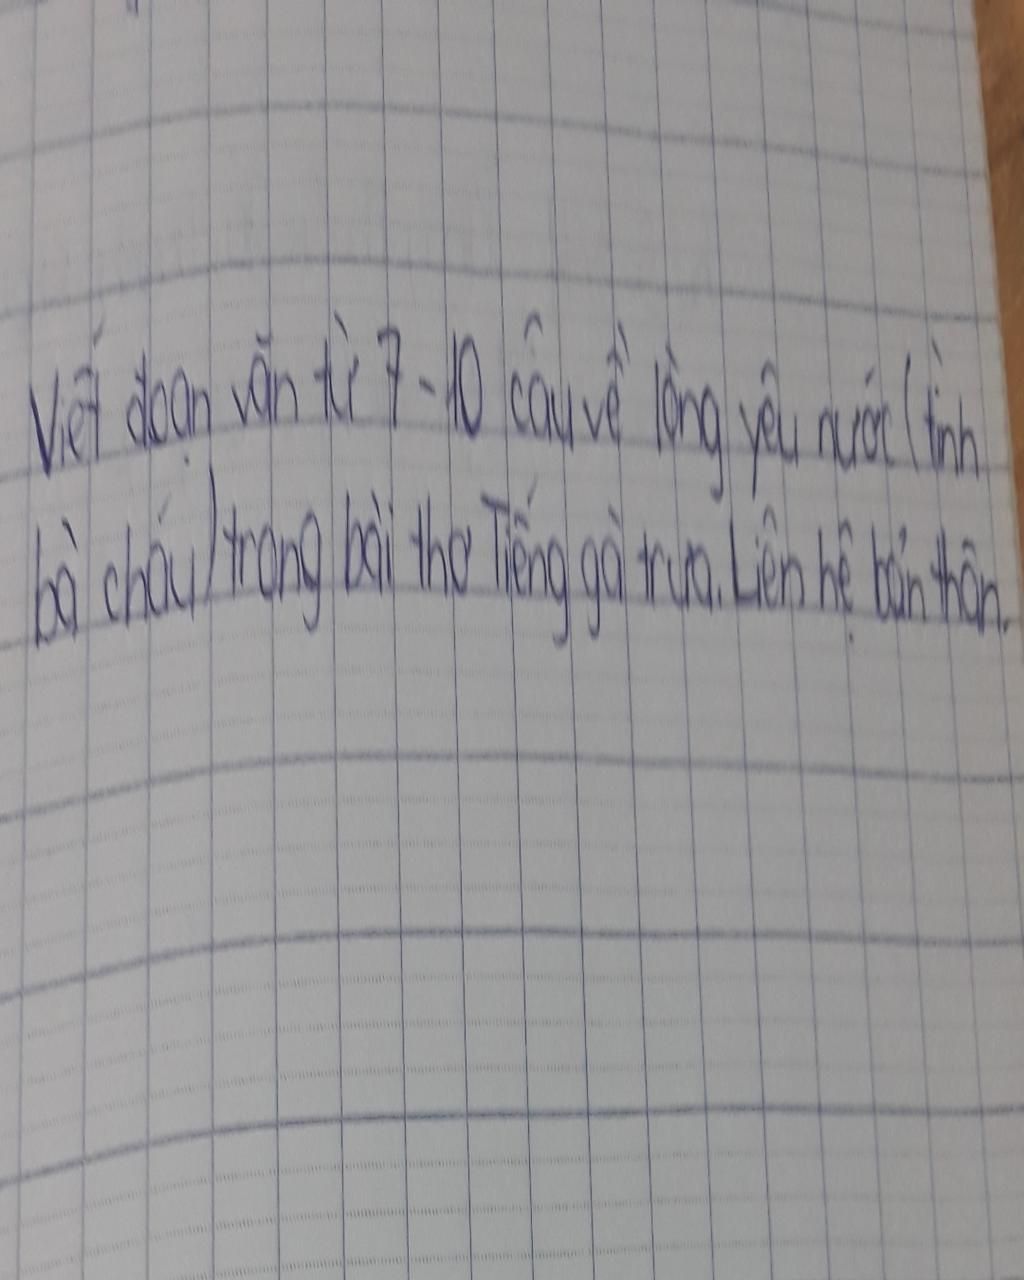 Viết đoạn văn từ 7-10 câu về lòng yêu nước (tình
bà cháu) trong bài thơ Tiếng gà trưa. Liên hệ bản thân.